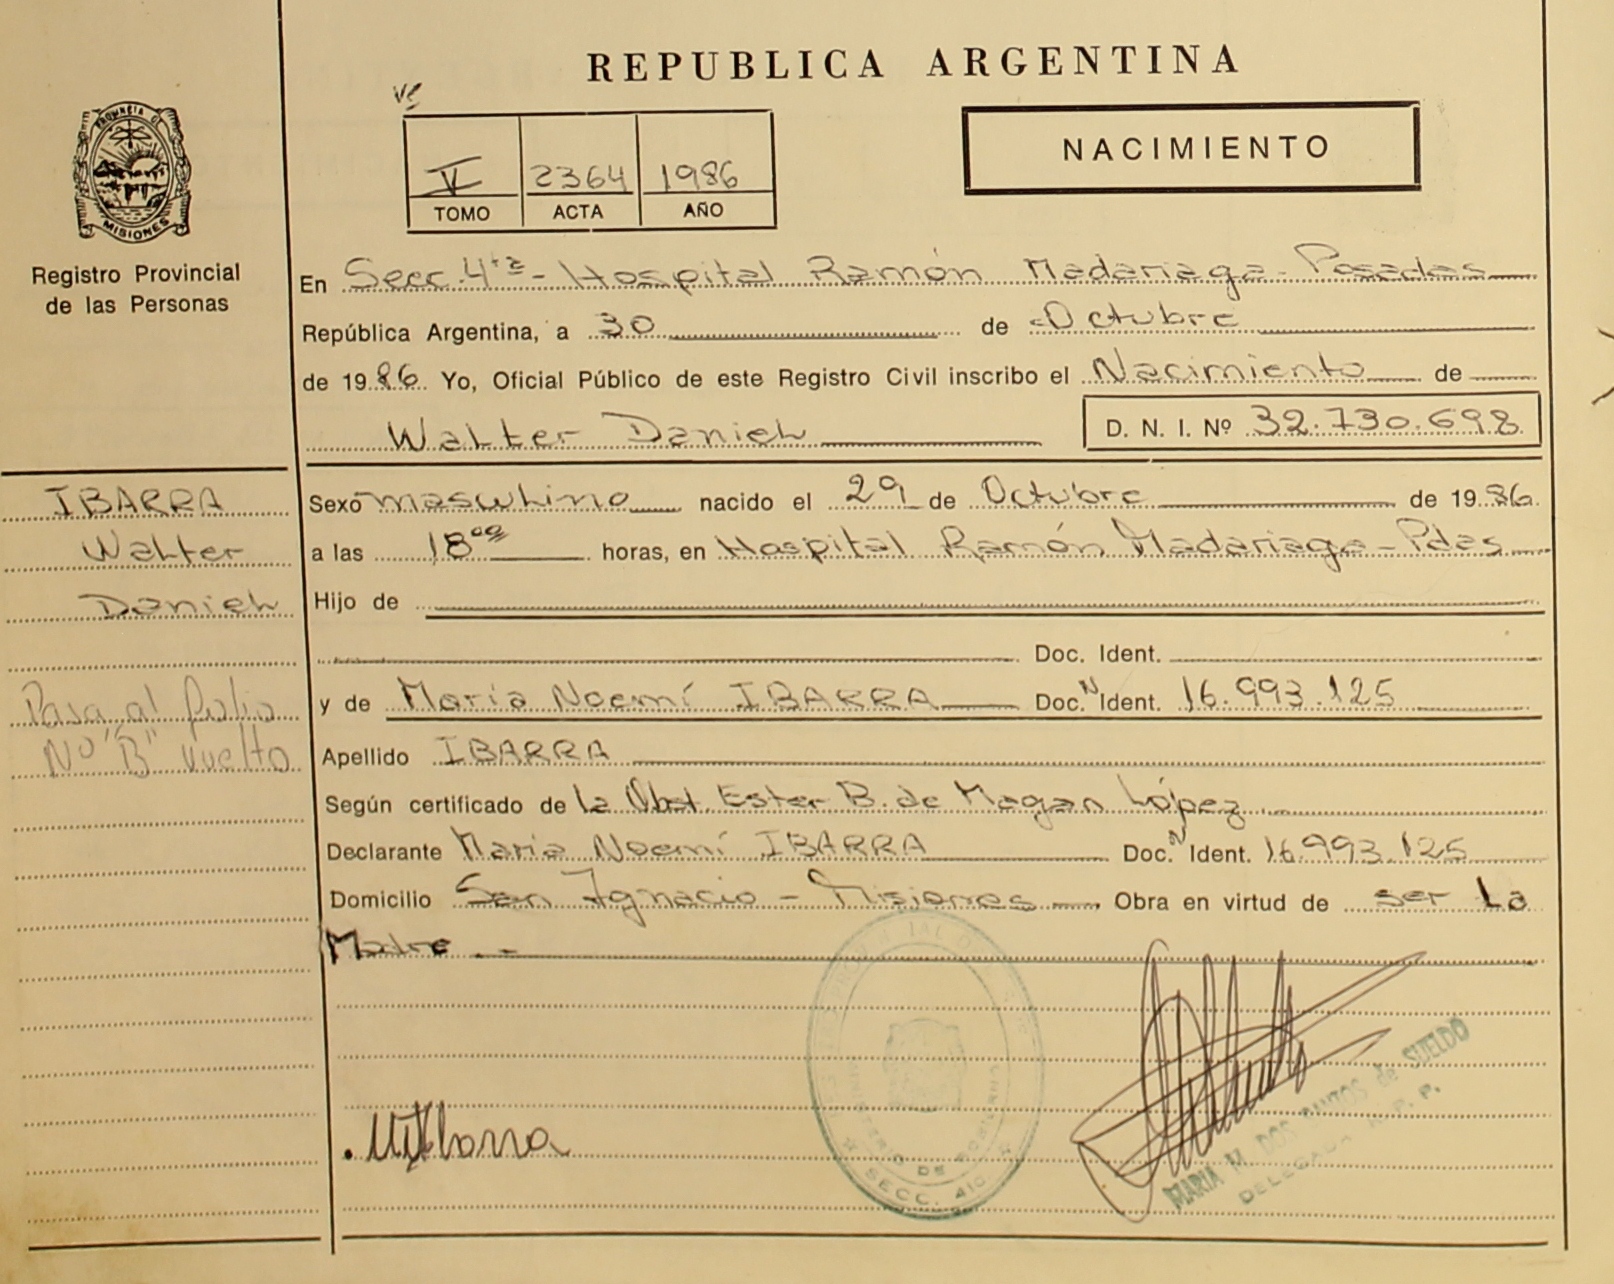 REPUBLICA ARGENTINA
V
2364
1986
TOMO
ACTA
AÑO
NACIMIENTO
PROVINCIA DE
MISIONES
Registro Provincial
de las Personas
En Secc. 4ta - Hospital Ramón Madariaga - Posadas
República Argentina, a 30 de Octubre
de 1986 Yo, Oficial Público de este Registro Civil inscribo el Nacimiento de
Walter Daniel
D. N. I. Nº 32.730.698
IBARRA
Walter
Daniel
Pasa al folio
Nº "B" vuelto
Sexo masculino nacido el 29 de Octubre de 1986.
a las 18 horas, en Hospital Ramón Madariaga - Pdas
Hijo de
Doc. Ident.
y de María Noemí IBARRA Doc. N Ident. 16.993.125
Apellido IBARRA
Según certificado de la Obst. Ester B. de Magan López
Declarante María Noemí IBARRA Doc. N Ident. 16.993.125
Domicilio San Ignacio - Misiones Obra en virtud de ser la
Madre
MNIbarra
SECC. 4ta
MARIA M. DOS SANTOS de SUELDO
DELEGADA R. P. P.